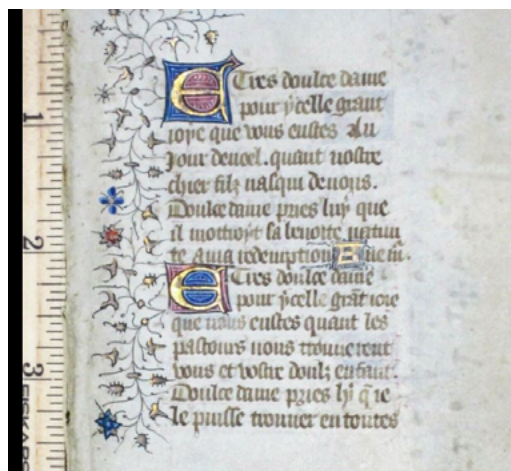 E Tres doulce dame
pour ycelle grant
ioye que vous eustes Au
Jour denoel. quant nostre
chier filz nasqui deuous.
Doulce dame pries luy que
il mottroyt sa benoite natiui
te A ma redemption Aue m.
E Tres doulce dame
pour ycelle grāt ioie
que vous eustes quant les
pastours vous trouuerent
vous et vostre doulz enfant.
Doulce dame pries ly q̄ ie
le puisse trouuer en toutes
1
2
3
FISKARS